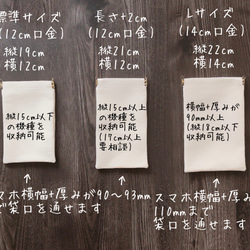 標準サイズ
(12cm口金)
縦19cm
横12cm
縦15cm以下
の機種を
収納可能
長さ+2cm
(12cm口金)
縦21cm
横12cm
縦15cm以上
の機種を
収納可能
(17cm以上
要相談)
Lサイズ
(14cm口金)
縦22cm
横14cm
横幅+厚みが
90mm以上
(縦18cm以下
収納可能)
スマホ横幅+厚みが90～93mm
で袋口を通せます
スマホ横幅+厚みが
110mmまで
袋口を通せます